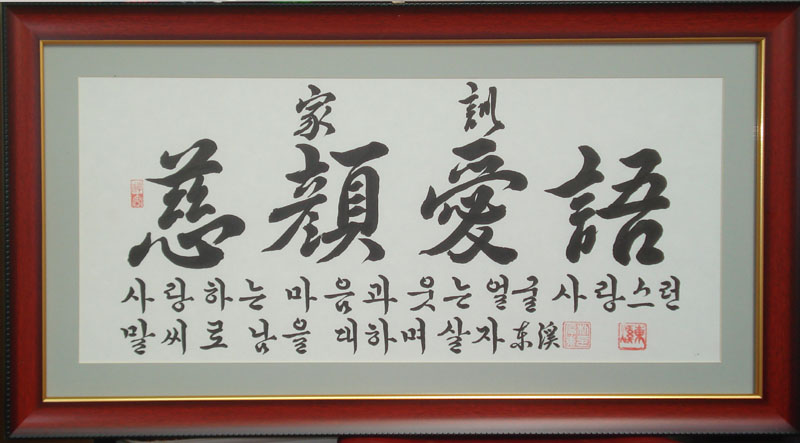 家訓
慈顔愛語
사랑하는 마음과 웃는 얼굴 사랑스런
말씨로 남을 대하며 살자 东溪